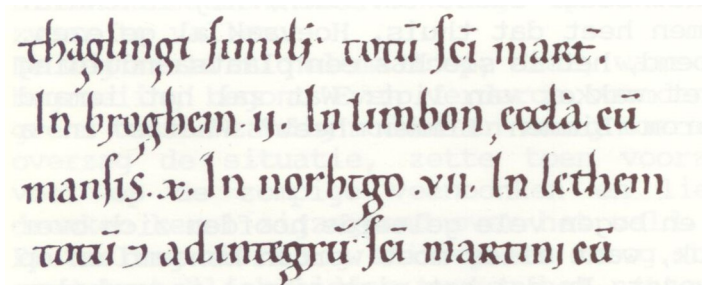 thaglingi ſimilj· totū ſcī mart
In broghem. ii. In limbon eccła cū
manſis. x. In norhtgo vii. In lethem
totū ⁊ ad integrū ſcī martinj